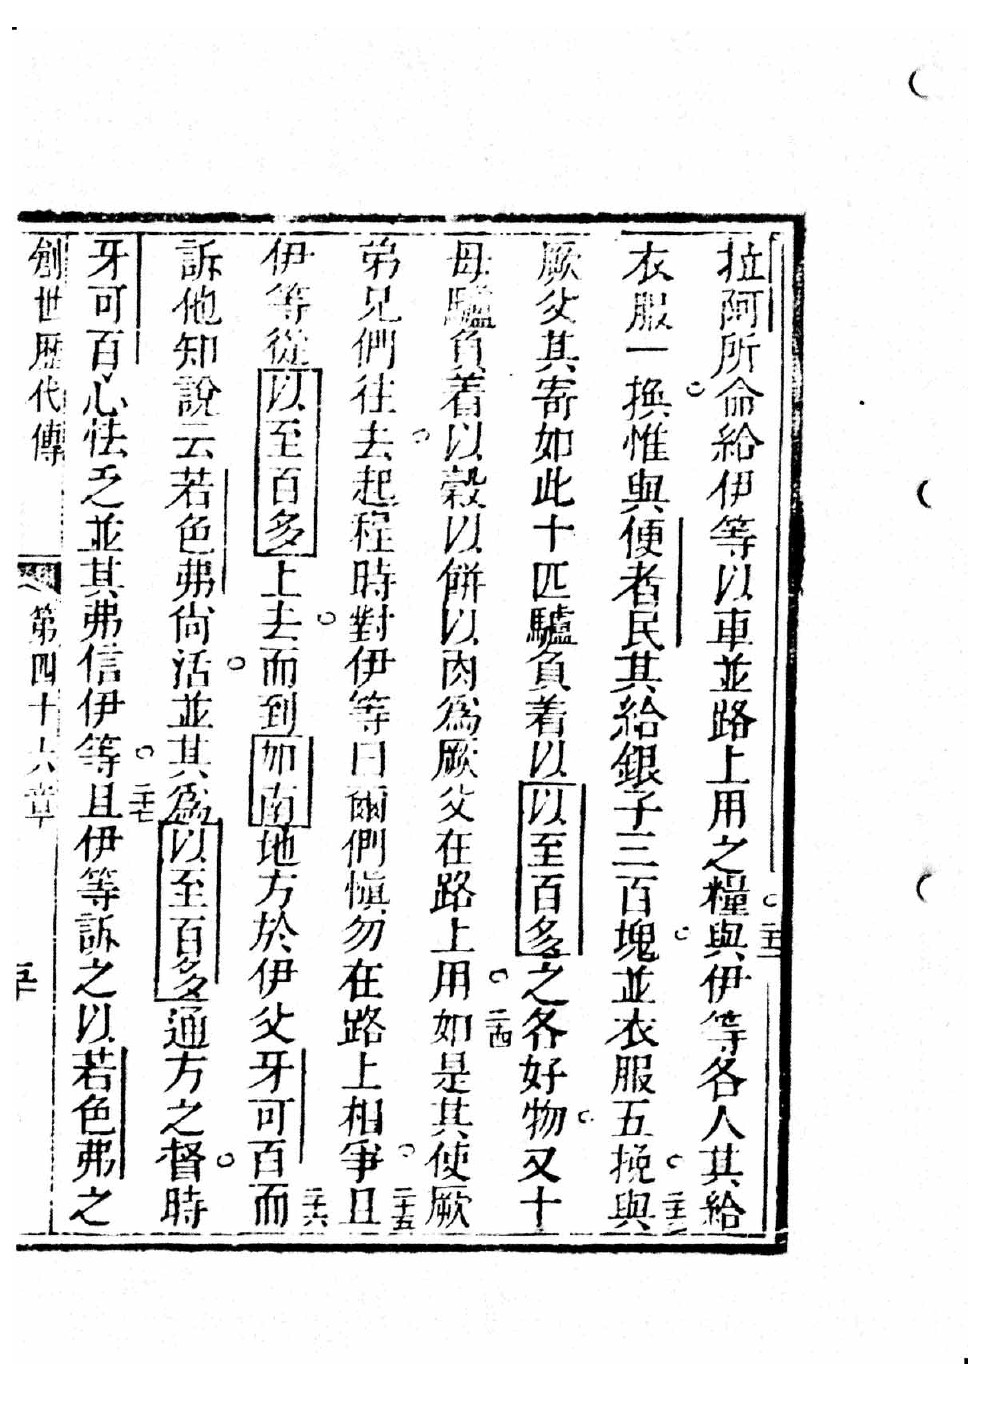 拉阿所命給伊等以車並路上用之糧。二十二與伊等各人其給
衣服一換。惟與便者民其給銀子三百塊。並衣服五挽。二十三與
厥父其寄如此十匹驢負着以以至百多之各好物。又十
母驢負着以穀以餅以肉為厥父在路上用。二十四如是其使厥
弟兄們往去。起程時對伊等曰爾們慎勿在路上相爭。二十五且
伊等從以至百多上去。而到如南地方於伊父牙可百。二十六而
訴他知說云若色弗尚活。並其為以至百多通方之督。時
牙可百心怯乏並其弗信伊等。二十七且伊等訴之以若色弗之
創世歷代傳 第四十六章 五十